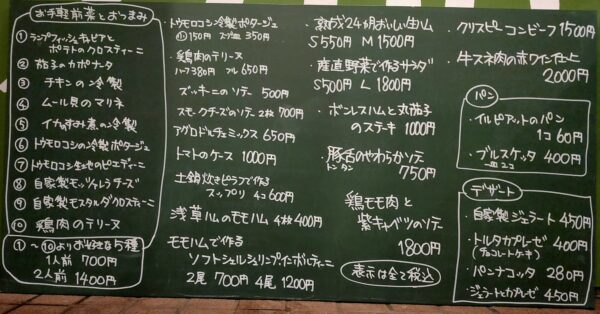 お手軽前菜とおつまみ
① ランプフィッシュキャビアと
ポテトのクロスティーニ
② 茄子のカポナータ
③ チキンの冷製
④ ムール貝のマリネ
⑤ イカのすみ煮の冷製
⑥ トウモロコシの冷製ポタージュ
⑦ トウモロコシ生地のピエディーニ
⑧ 自家製モッツァレラチーズ
⑨ 自家製モスタルダクロスティーニ
⑩ 鶏肉のテリーヌ
①～⑩よりお好きな5種
1人前 700円
2人前 1400円
トウモロコシ冷製ポタージュ
150円 350円
鶏肉のテリーヌ
ハーフ380円 フル 650円
ズッキーニのソテー 500円
スモークチーズのソテー 2枚 700円
アグロドとチェミックス 650円
トマトのケース 1000円
土鍋炊きピラフで作る
スップリ 4コ 600円
浅草ハムのモモハム 4枚 400円
モモハムで作る
ソフトシェルシュリンプインボルティーニ
2尾 700円 4尾 1200円
・熟成24か月おいしい生ハム
S 550円 M 1500円
・産直野菜で作るサラダ
S 550円 L 1800円
・ボンレスハムと丸茄子
のステーキ 1000円
・豚舌のやわらかソテー
トンタン 750円
鶏モモ肉と
紫キャベツのソテー
1800円
表示は全て税込
・クリスピーコンビーフ 1500円
・牛スネ肉の赤ワイン仕立
2000円
パン
・イルピアットのパン
1コ 60円
・ブルスケッタ 400円
二コ
デザート
・自家製ジェラート 450円
・トルタカプレーゼ 400円
(チョコレートケーキ)
・パンナコッタ 280円
・ジェラートとカプレーゼ 450円